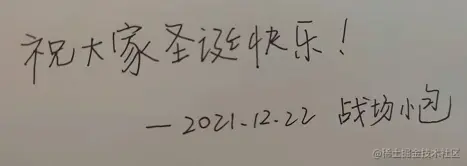 祝大家圣诞快乐！
— 2021.12.22 战场小包
@稀土掘金技术社区